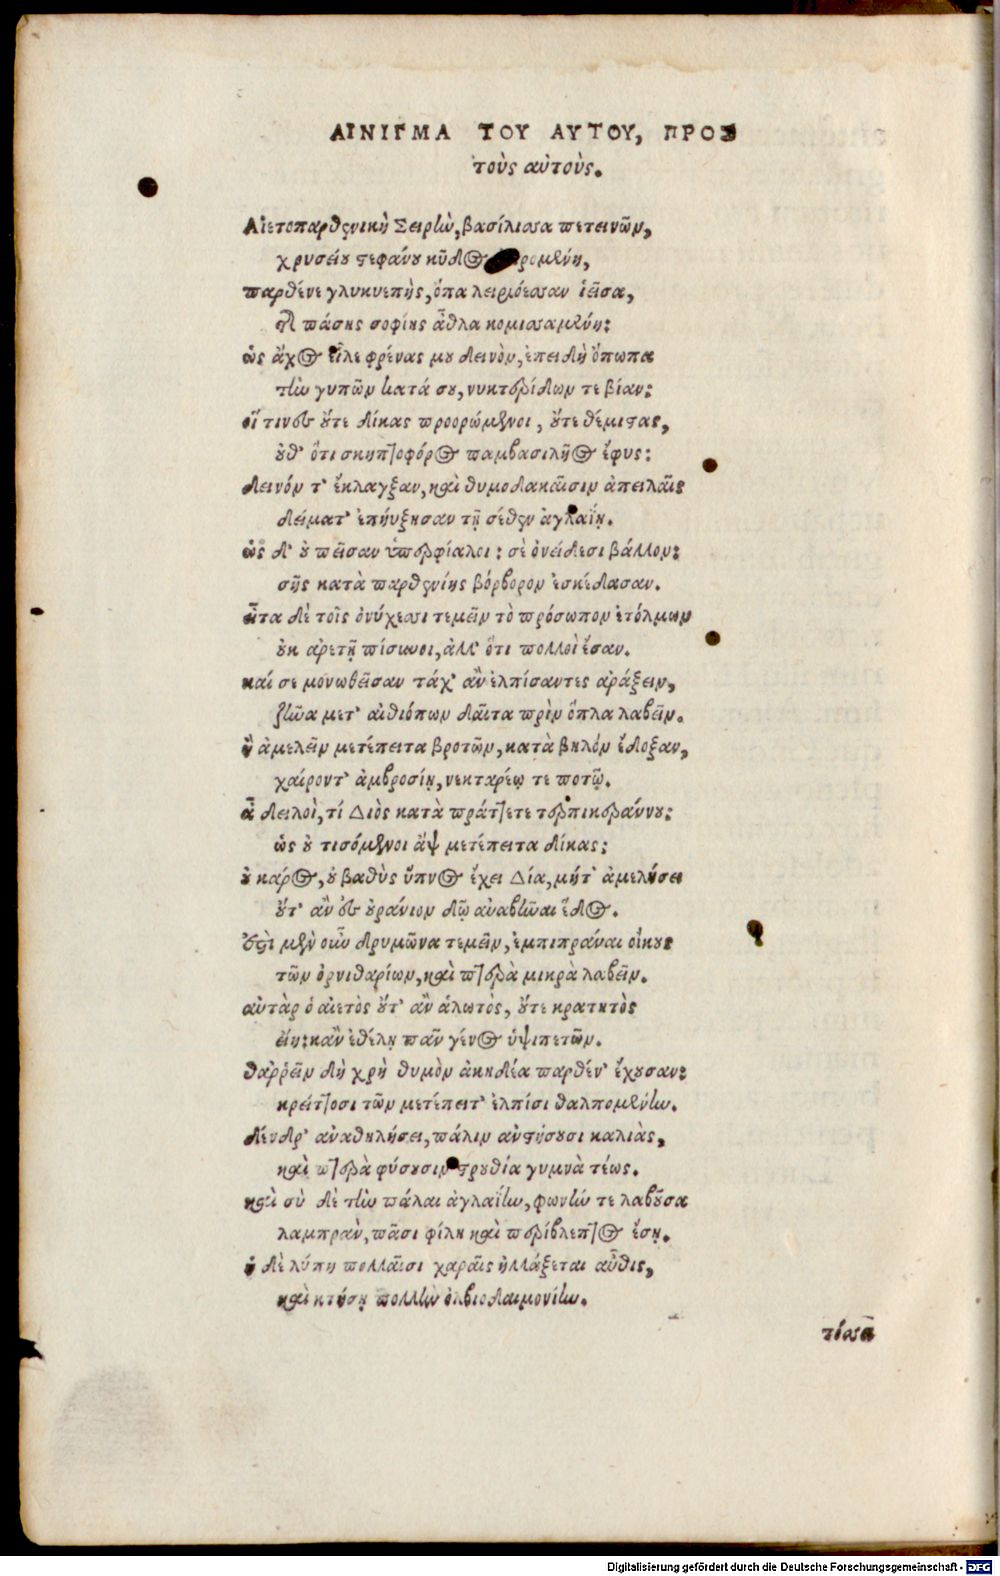 ΑΙΝΙΓΜΑ ΤΟΥ ΑΥΤΟΥ, ΠΡΟΣ
τοὺς αὐτοὺς.
Αἰετοπαρθενικὴ Σειρὴν, βασίλισσα πετεινῶν,
χρυσείου στεφάνου κῦδος
παρθένε γλυκυεπὴς, ὄπα λειριόεσσαν ἱεῖσα,
πάσης σοφίης ἆθλα κομισσαμένη:
ὡς ἄχος εἷλε φρένας μου δεινὸν, ἐπειδὴ ὄπωπα
τὴν γυπῶν κατά σου, νυκτερίδων τε βίαν:
οἵ τινες οὔτε δίκας προορώμενοι, οὔτε θέμιστας,
οὐθ' ὅτι σκηπτοφόρος παμβασιλῆος ἔφυς:
δεινόν τ' ἔκλαγξαν, καὶ θυμοδακαῖσιν ἀπειλαῖς
δείματ' ἐπήυξησαν τῇ σέθεν ἀγλαΐῃ.
ὡς δ' οὐ πεῖσαν ὑπερφίαλοι: σὲ ὀνείδεσι βάλλον:
σῆς κατὰ παρθενίης βόρβορον ἐσκέδασαν.
εἶτα δὲ τοῖς ὀνύχεσσι τεμεῖν τὸ πρόσωπον ἐτόλμων
οὐκ ἀρετῇ πίσυνοι, ἀλλ' ὅτι πολλοὶ ἔσαν.
καί σε μονωθεῖσαν τάχ' ἂν ἐλπίσαντες ἀράξειν,
ζῆνα μετ' αἰθιόπων δαῖτα πρὶν ὅπλα λαβεῖν.
ἢ ἀμελεῖν μετέπειτα βροτῶν, κατὰ βηλὸν ἔδοξαν,
χαίροντ' ἀμβροσίῃ, νεκταρέῳ τε ποτῷ.
ἆ δειλοὶ, τί Διὸς κατὰ πράττετε τερπικεραύνου:
ὡς οὐ τισόμενοι ἂψ μετέπειτα δίκας;
οὐ κάρος, οὐ βαθὺς ὕπνος ἔχει Δία, μήτ' ἀμελήσει
οὔτ' ἂν ἐς οὐράνιον δῶ ἀναβῆναι ἕδος.
ἔστι μὲν οὖν δρυμῶνα τεμεῖν, ἐμπιπράναι οἴκους
τῶν ὀρνιθαρίων, καὶ πτερὰ μικρὰ λαβεῖν.
αὐτὰρ ὁ αἰετὸς οὔτ' ἂν ἁλωτὸς, οὔτε κρατητὸς
εἴη: κἂν ἐθέλῃ πᾶν γένος ὑψιπετῶν.
θαῤῥεῖν δὴ χρὴ θυμὸν ἀκηδέα παρθέν' ἔχουσαν:
κρείττοσι τῶν μετέπειτ' ἐλπίσι θαλπομένην.
δένδρ' ἀναθηλήσει, πάλιν ἀνστήσουσι καλιὰς,
καὶ πτερὰ φύσουσιν στρουθία γυμνὰ τέως.
καὶ σὺ δὲ τὴν πάλαι ἀγλαΐην, φωνήν τε λαβοῦσα
λαμπρὰν, πᾶσι φίλη καὶ περίβλεπτος ἔσῃ.
ἡ δὲ λύπη πολλαῖσι χαραῖς ἠλλάξεται αὖθις,
καὶ κτήσῃ πολλὴν ὀλβιοδαιμονίην.
τόσσα
Digitalisierung gefördert durch die Deutsche Forschungsgemeinschaft - DFG